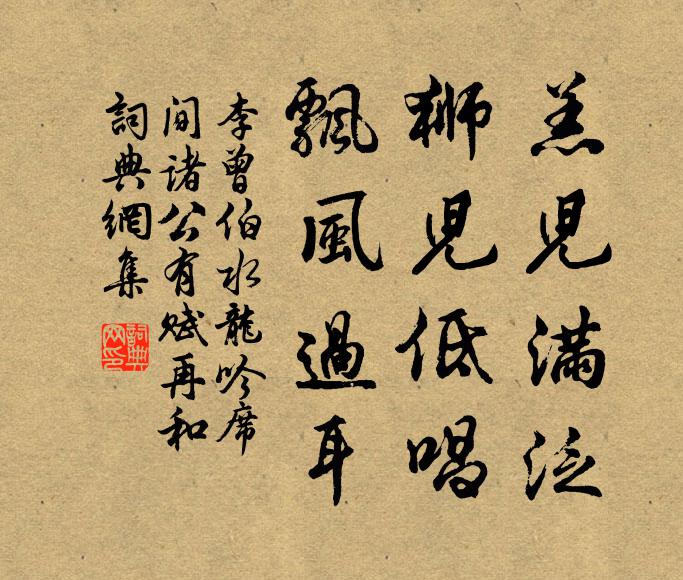 羔兒滿泛
獅児低唱
飄風過耳
李曾伯水龍吟席
间諸公有賦再和
詞典網集
詞典
网印